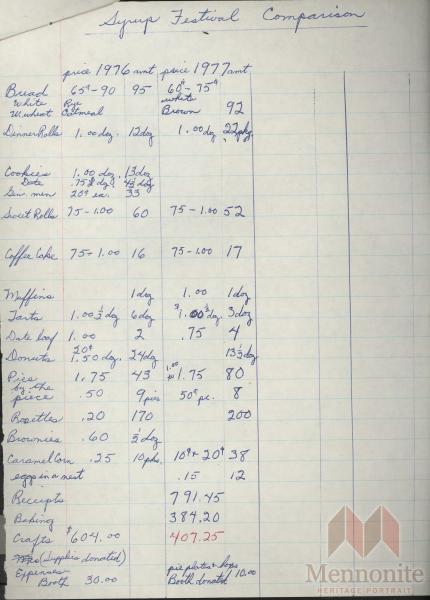 Syrup Festival Comparison
price 1976 amt price 1977 amt
Bread 65¢-90 95 60¢-75¢
White Rye white
W. wheat Oatmeal Brown 92
Dinner Rolls 1.00 doz. 12 doz 1.00 doz 22 pkg.
Cookies 1.00 doz. 13 doz
Date .75 ½ doz. 4½ doz
Gin. men 20¢ ea. 33
Sweet Rolls 75-1.00 60 75-1.00 52
Coffee Cake 75-1.00 16 75-1.00 17
Muffins 1 doz 1.00 1 doz
Tarts 1.00 ½ doz 6 doz $1.00 ½ doz 3 doz
Date loaf 1.00 2 .75 4
Donuts 20¢ 1.50 doz. 24 doz 13½ doz
Pies 1.75 43 1.00 + 1.75 80
by the piece .50 9 pies 50¢ pc. 8
Rosettes .20 170 200
Brownies .60 ½ doz
Caramel Corn .25 10 pks. 10¢ + 20¢ 38
eggs in a nest .15 12
Receipts 791.45
Baking 384.20
Crafts $604.00 407.25
(Supplies donated)
Expenses pie plates + boxes
Booth 30.00 Booth donated 10.00
Mennonite
HERITAGE PORTRAIT